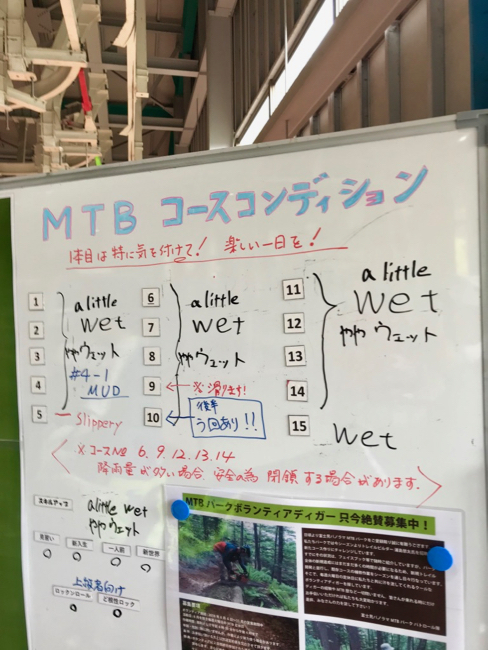 MTB コースコンディション
1本目は特に気を付けて! 楽しい一日を!
1 2 3 4 5
a little
wet
ややウェット
#4-1
MUD
Slippery
6 7 8 9 10
a little
wet
ややウェット
※滑ります!
後半
う回あり!!
11 12 13 14 15
a little
wet
ややウェット
wet
※コースNo 6. 9. 12. 13. 14
降雨量が多い場合、安全の為 閉鎖する場合があります。
スキルアップ
a little wet
ややウェット
見習い 新入生 一人前 新世界
上級者向け
ロックンロール ど根性ロック
MTB パークボランティアディガー 只今絶賛募集中!
富士見パノラマ MTB パーク パトロール隊
募集要項